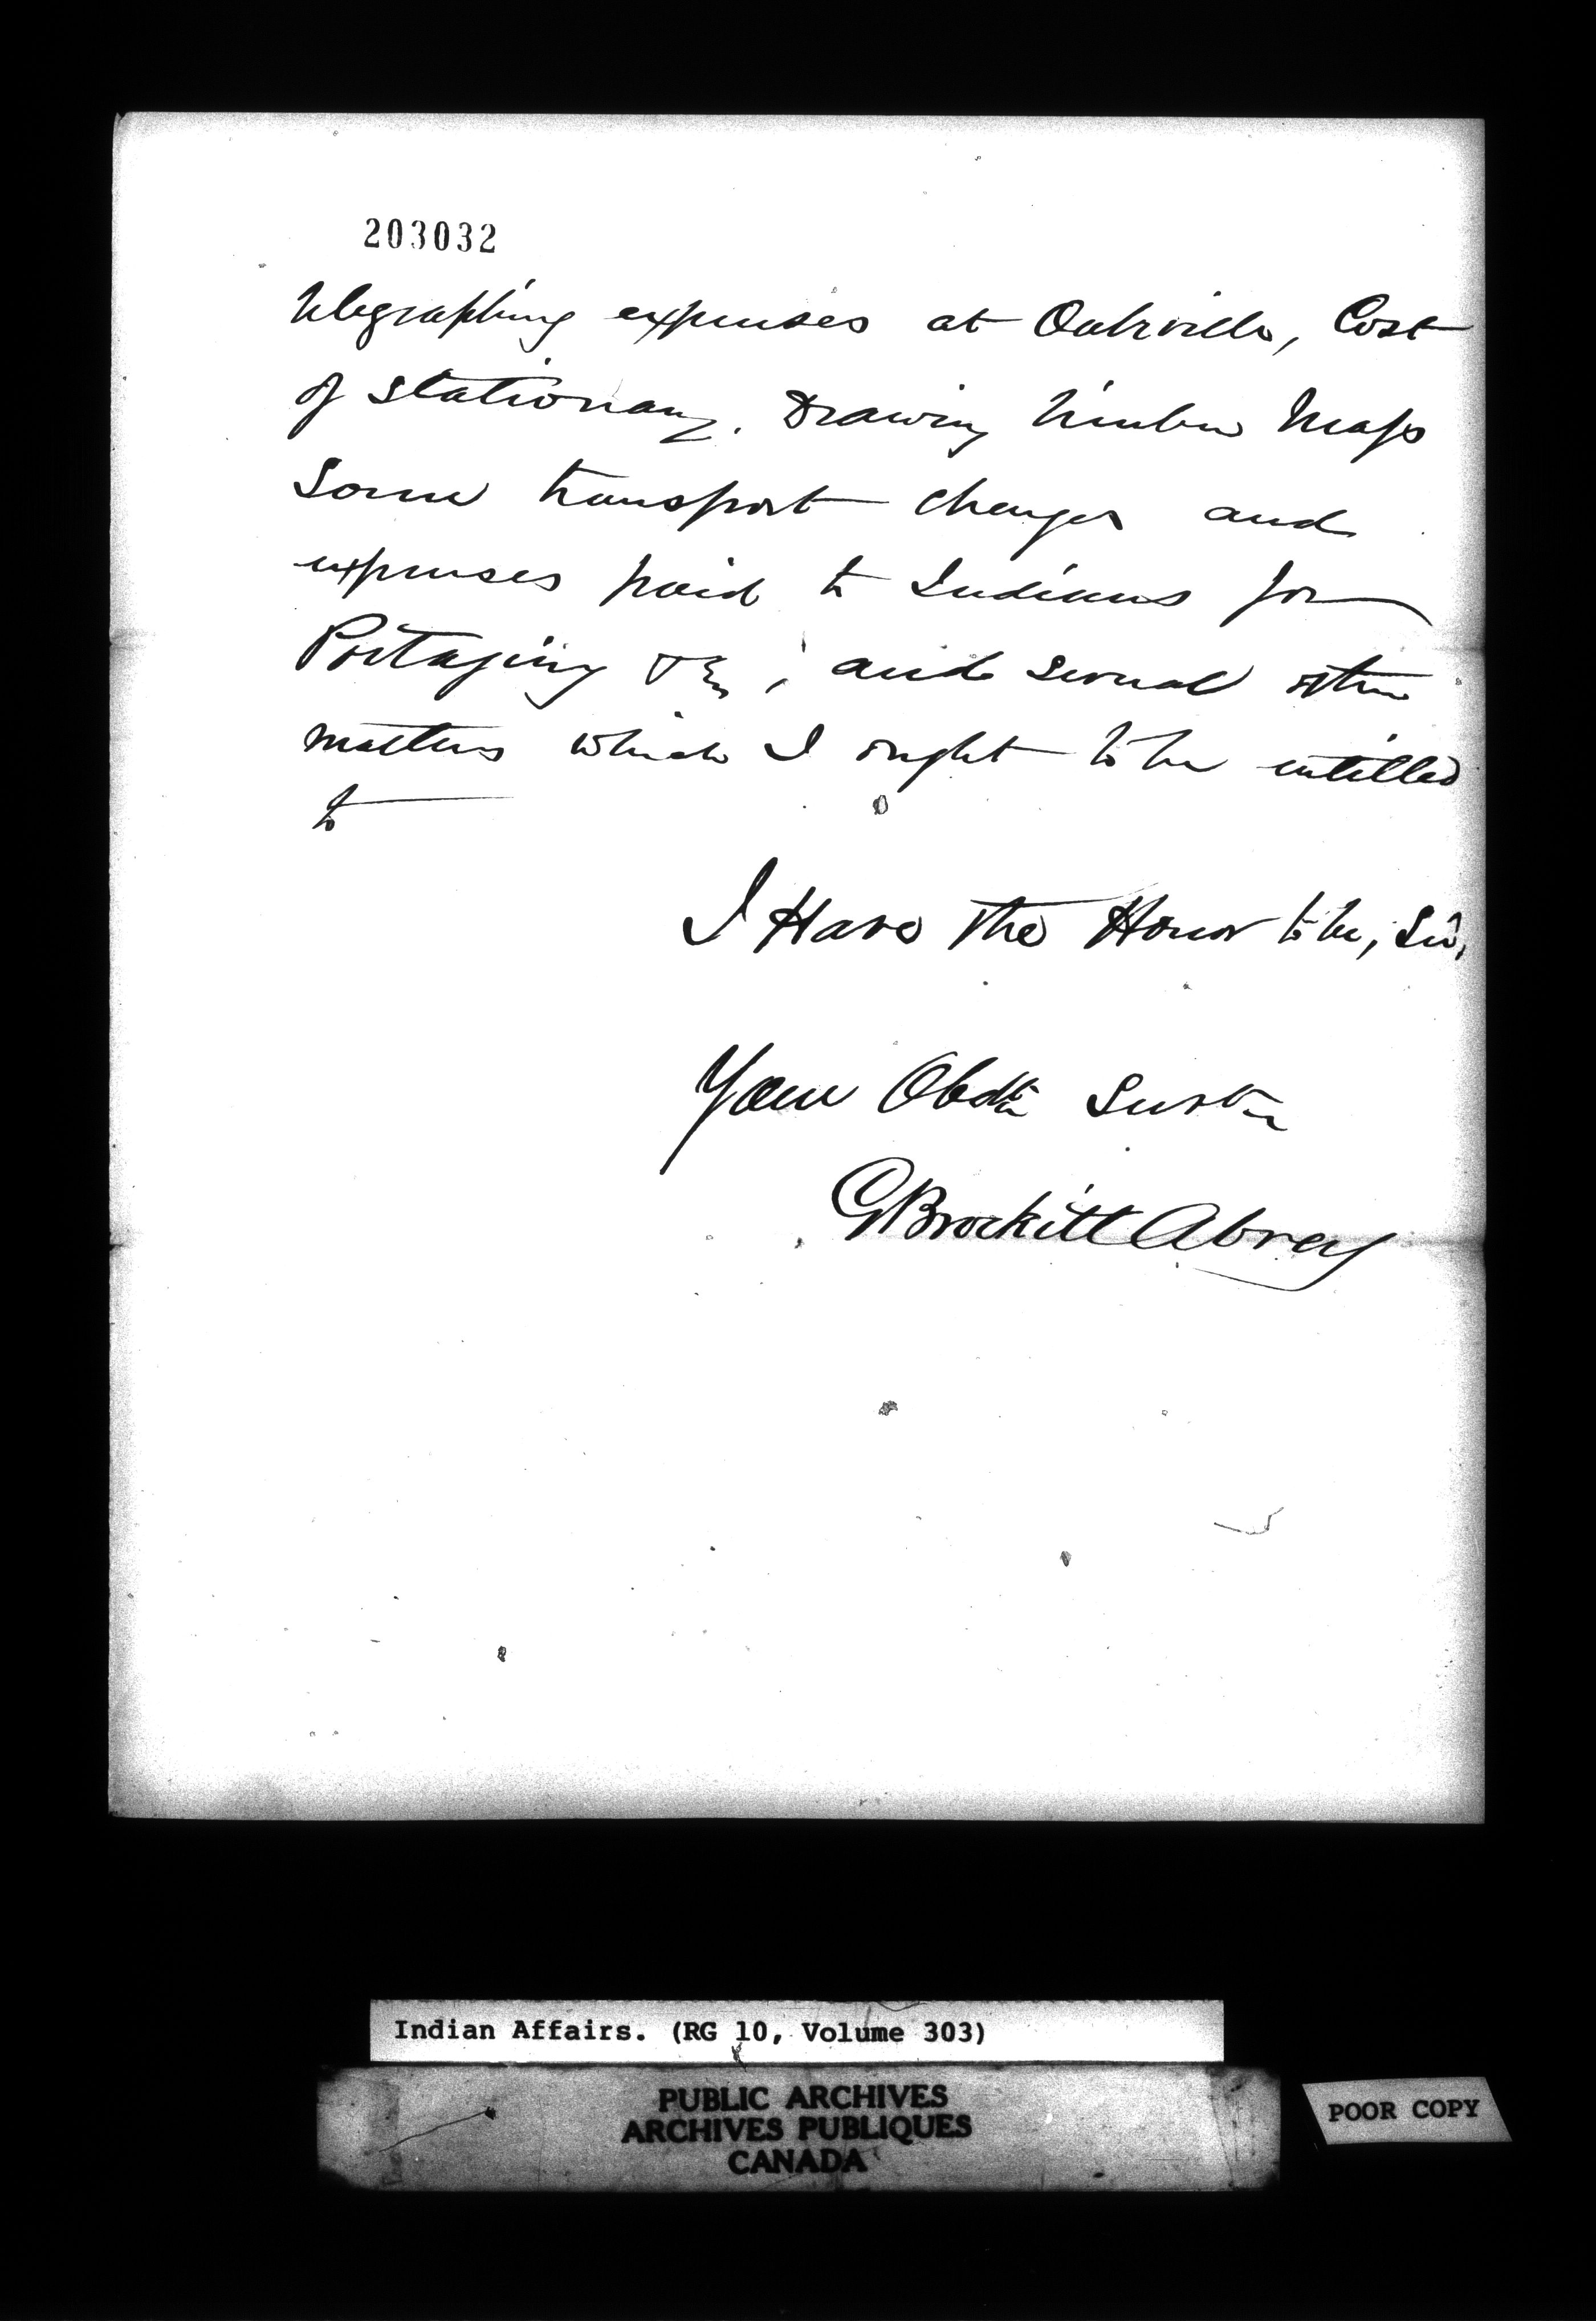 203032
telegraphing expenses at Oakville, Cost
of stationary, Drawing timber Maps
Some transport charges and
expenses paid to Indians for
Portaging &c, and several other
matters which I ought to be entitled
to
I Have the Honor to be, Sir,
Your Obdt Servt
G Brockitt Abrey
Indian Affairs. (RG 10, Volume 303)
PUBLIC ARCHIVES
ARCHIVES PUBLIQUES
CANADA
POOR COPY